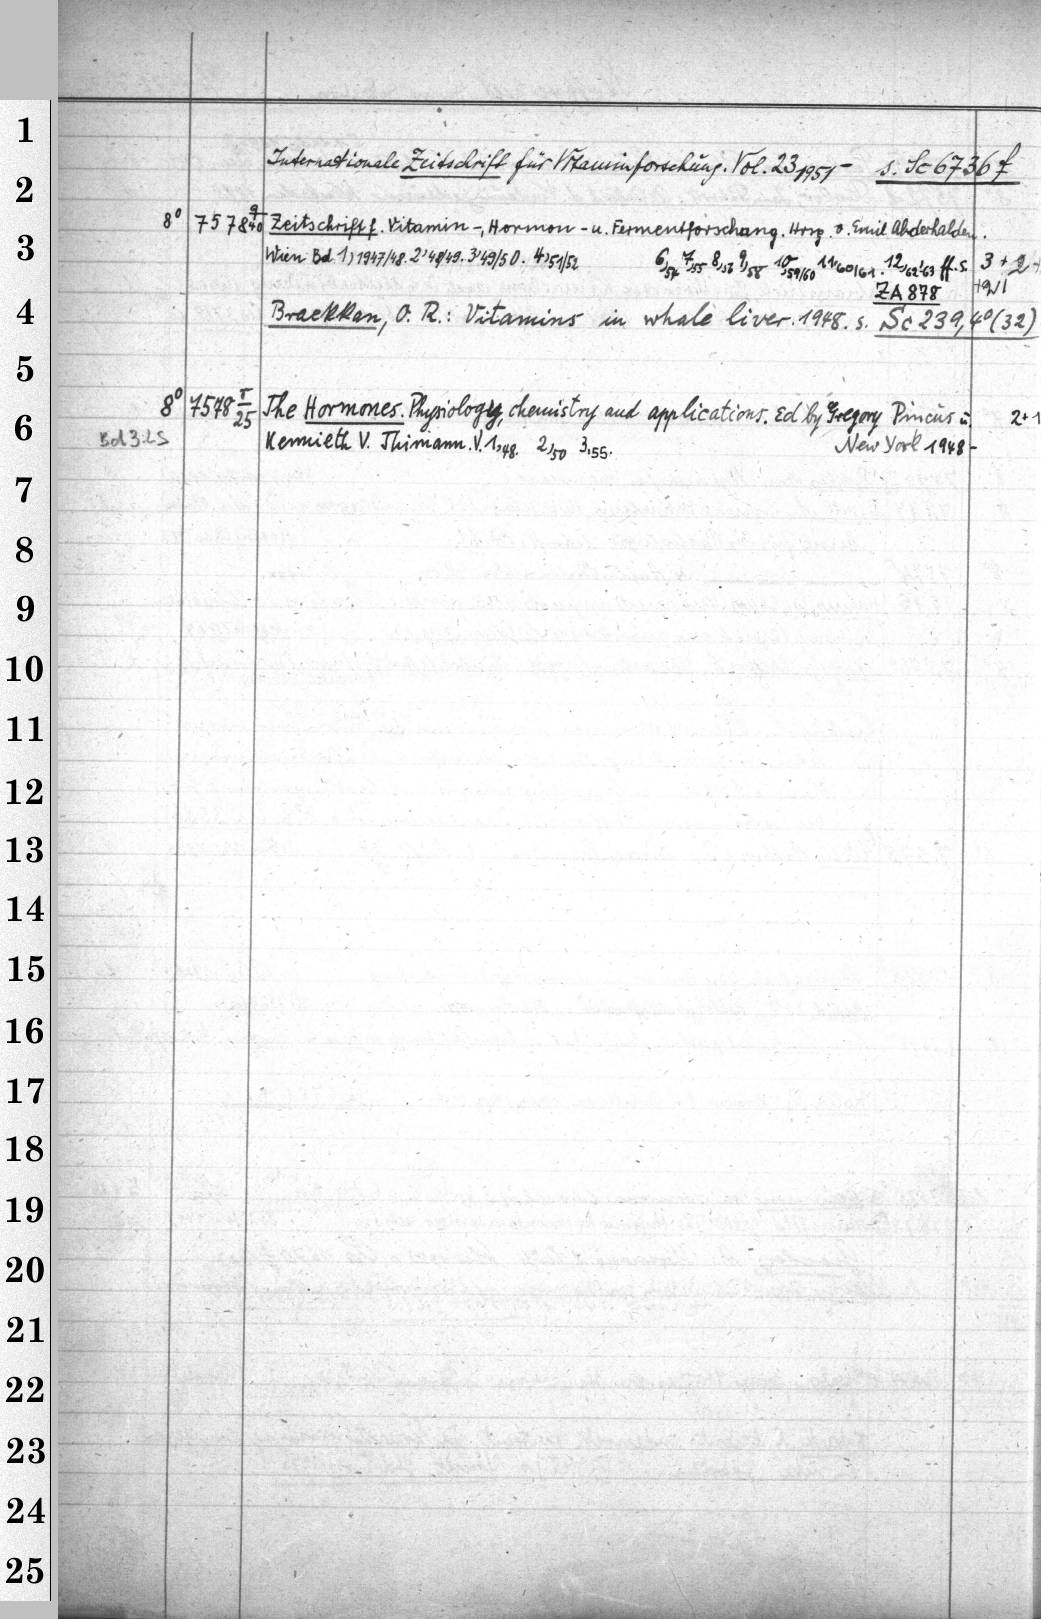 1
Internationale Zeitschrift für Vitaminforschung. Vol. 23, 1951- s. Sc 6736 f
2
8° 7578 9/40 Zeitschrift f. Vitamin-, Hormon- u. Fermentforschung. Hrsg. v. Emil Abderhalden.
3
Wien Bd 1, 1947/48. 2,'48/49. 3,'49/50. 4,51/52 6,54 7,55 8,56 9,58 10,59/60 11,60/61. 12,62/63 ff. s. 3 + 2 +
ZA 878
4
Braekkan, O. R.: Vitamins in whale liver. 1948. s. Sc 239, 4° (32)
5
8° 7578 r/25 The Hormones. Physiology, chemistry and applications. Ed by Gregory Pincus u. 2+1
6
Bd 3: LS Kennieth V. Thimann. V. 1,48. 2,50 3,55. New York 1948-
7
8
9
10
11
12
13
14
15
16
17
18
19
20
21
22
23
24
25